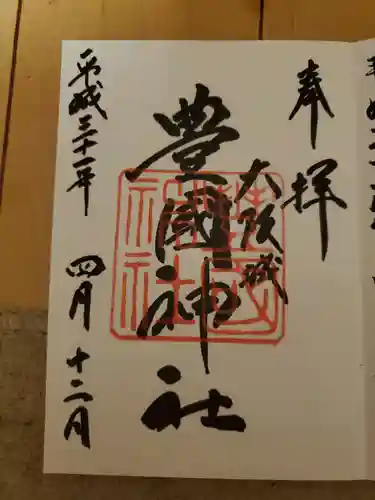 奉拝
大阪城
豊國神社
平成三十一年 四月 十二日
豊國神社